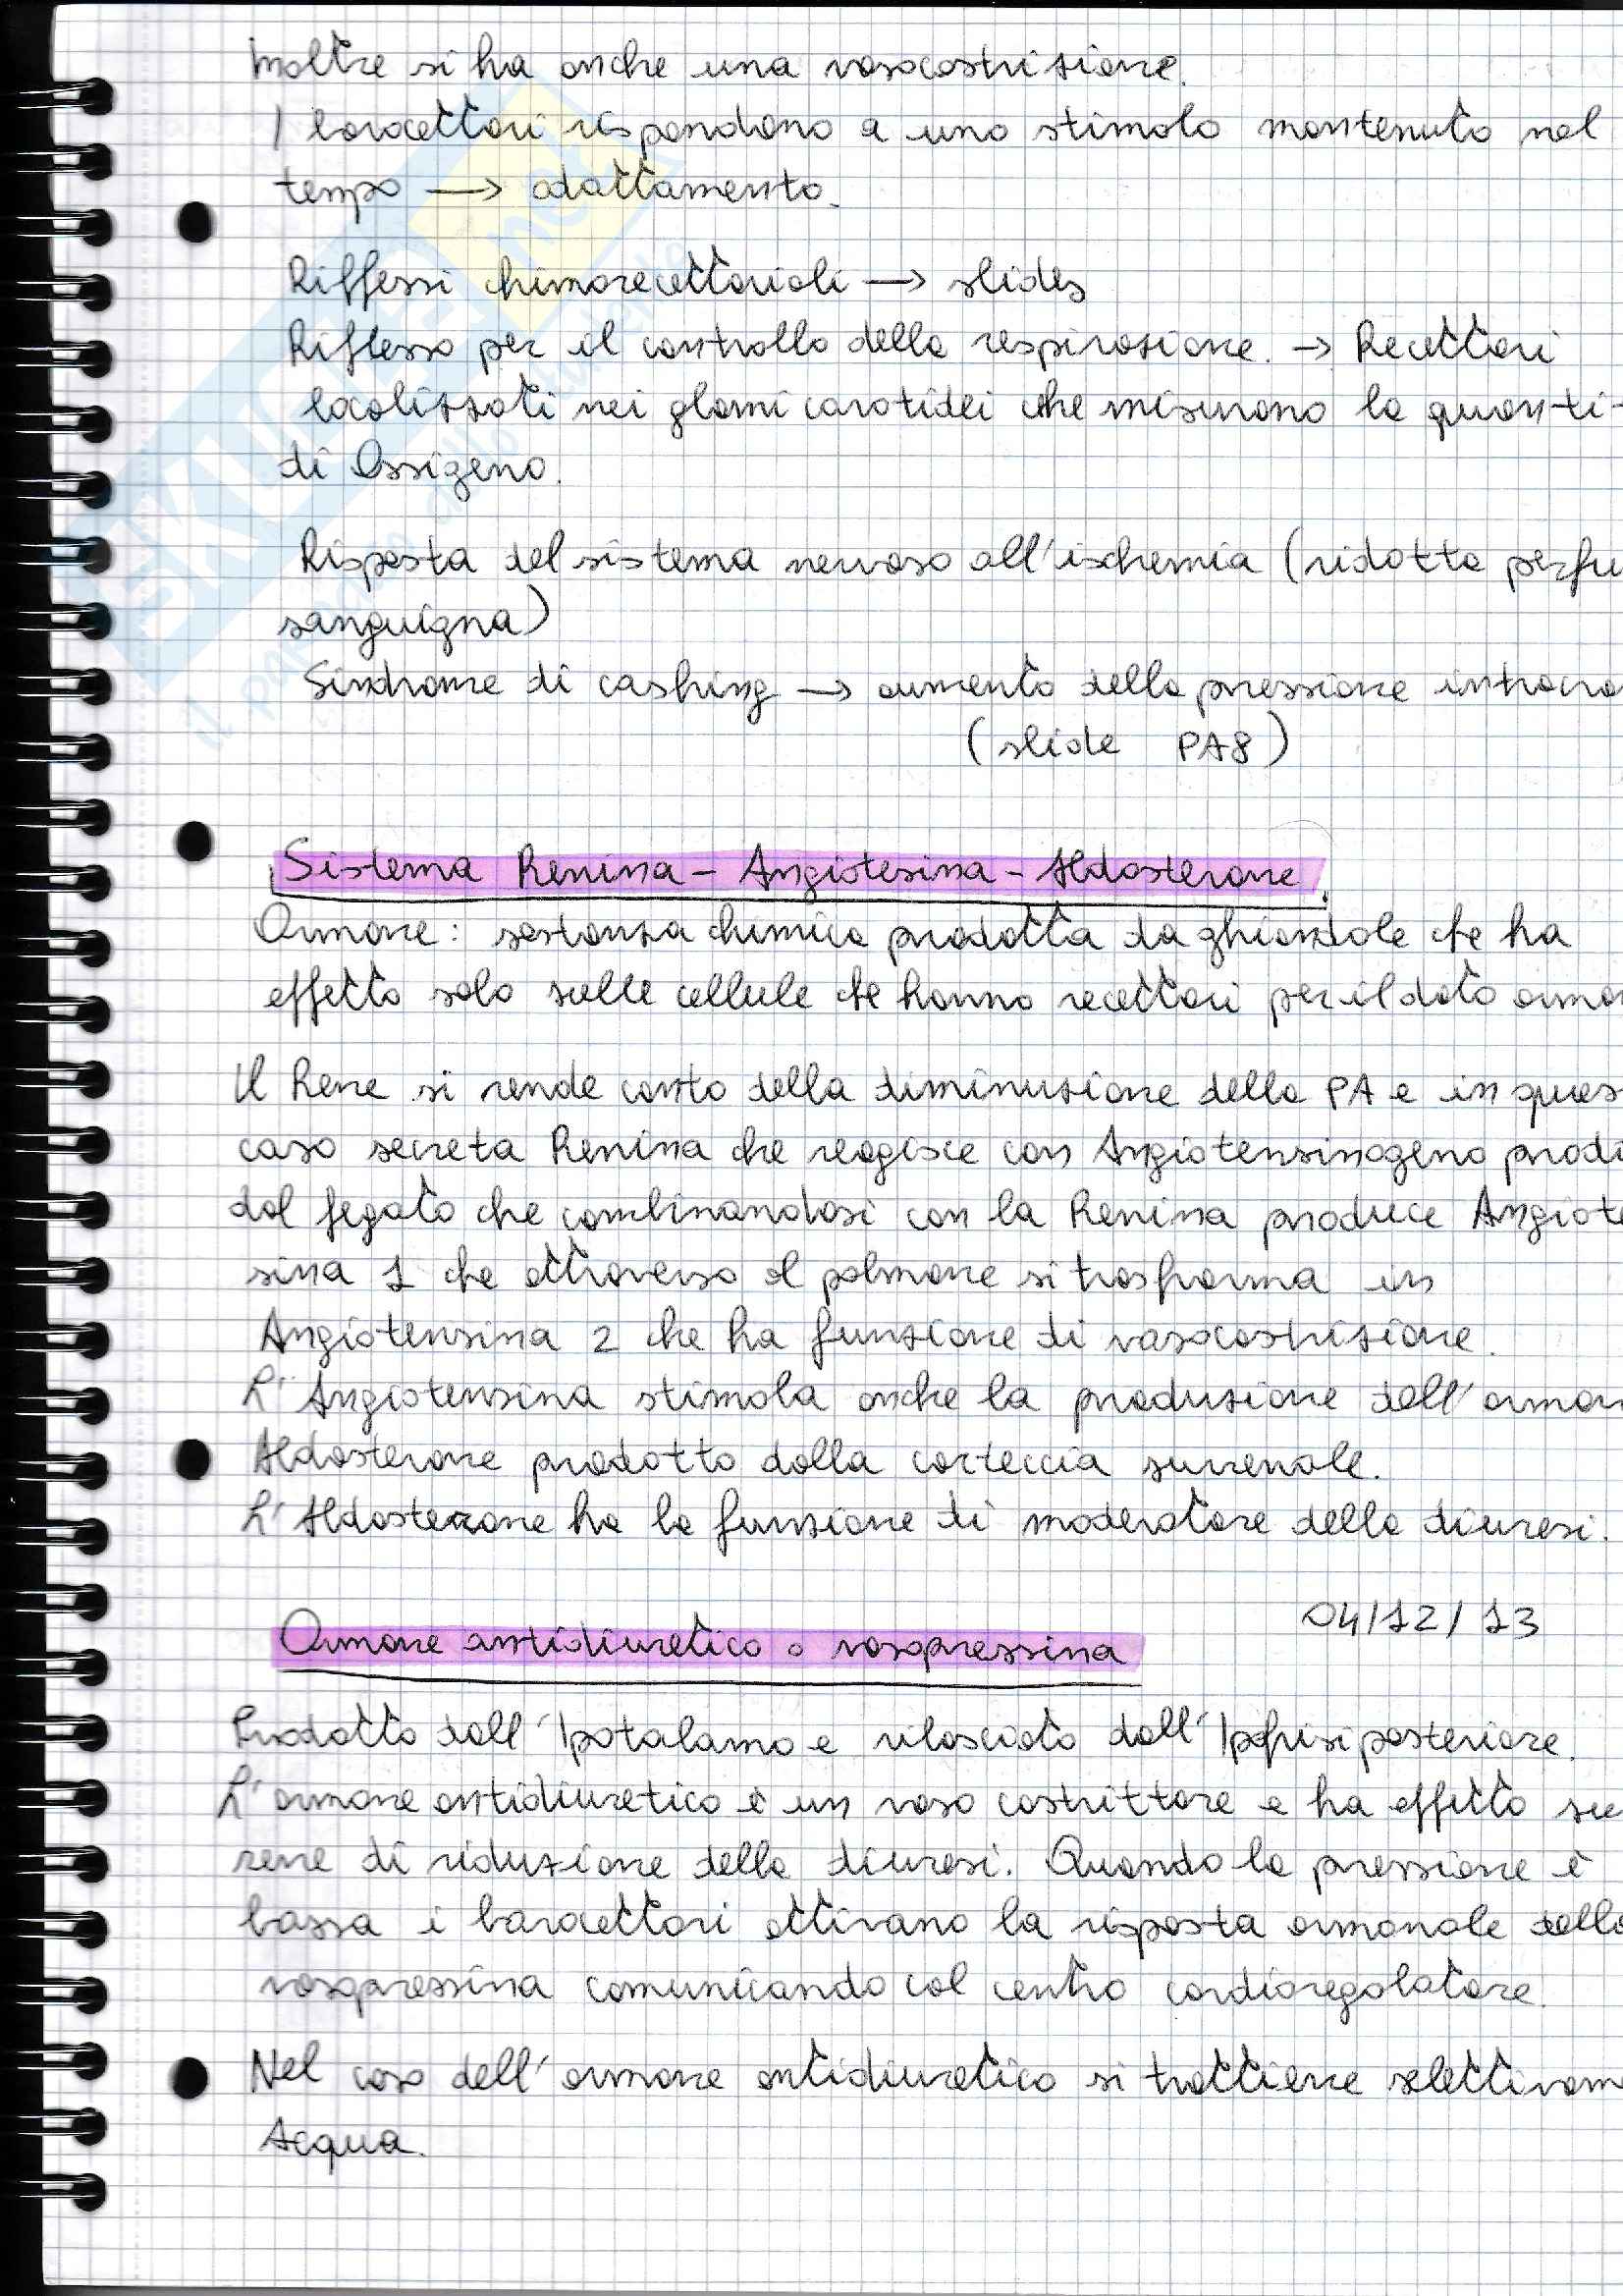 Inoltre si ha anche una vasocostrizione.
I barocettori rispondono a uno stimolo mantenuto nel
tempo → adattamento.
Riflessi chimorecettoriali → slides
Riflesso per il controllo della respirazione. → Recettori
localizzati nei glomi carotidei che misurano la quanti-
di Ossigeno.
Risposta del sistema nervoso all'ischemia (ridotta perfu
sanguigna)
Sindrome di cashing → aumento della pressione intracra
(slide PA8)
Sistema Renina - Angiotesina - Aldosterone.
Ormone: sostanza chimica prodotta da ghiandole che ha
effetto solo sulle cellule che hanno recettori per il dato ormo
Il Rene si rende conto della diminuzione della PA e in ques
caso secreta Renina che reagisce con Angiotensinogeno prod
dal fegato che combinandosi con la Renina produce Angiote
sina 1 che attraverso il polmone si trasforma in
Angiotensina 2 che ha funzione di vasocostrizione.
L'Angiotensina stimola anche la produzione dell'ormon
Aldosterone prodotto dalla corteccia surrenale.
L'Aldosterone ha la funzione di moderatore della diuresi.
04/12/13
Ormone antidiuretico o vasopressina
Prodotto dall'Ipotalamo e rilasciato dall'Ipofisi posteriore.
L'ormone antidiuretico è un vaso costrittore e ha effetto su
rene di riduzione della diuresi. Quando la pressione è
bassa i barocettori attivano la risposta ormonale della
vasopressina comunicando col centro cardioregolatore.
Nel caso dell'ormone antidiuretico si trattiene selettivame
Acqua.
SKUOLA.net